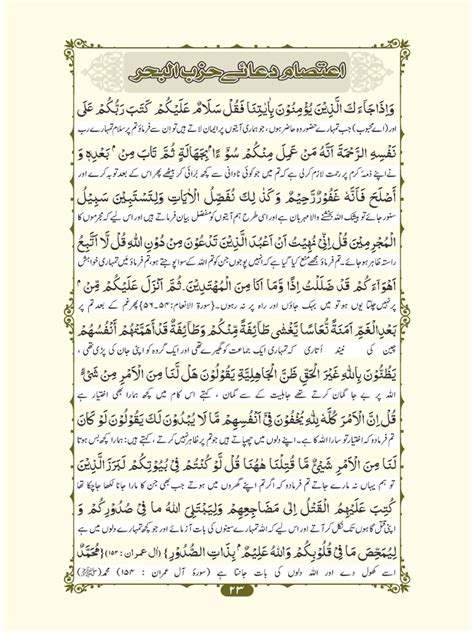 اعتصام دعائے حزب البحر
وَاِذَا جَآءَكَ الَّذِيْنَ يُؤْمِنُوْنَ بِاٰيٰتِنَا فَقُلْ سَلَامٌ عَلَيْكُمْ كَتَبَ رَبُّكُمْ عَلٰى
اور (اے محبوب) جب تمہارے حضور وہ حاضر ہوں، جو ہماری آیتوں پر ایمان لاتے ہیں تو ان سے فرماؤ تم پر سلام تمہارے رب
نَفْسِهِ الرَّحْمَةَ اَنَّهٗ مَنْ عَمِلَ مِنْكُمْ سُوْٓءًا ۢ بِجَهَالَةٍ ثُمَّ تَابَ مِنْ ۢ بَعْدِهٖ وَ
نے اپنے ذمہ کرم پر رحمت لازم کرلی ہے کہ تم میں جو کوئی نادانی سے کچھ برائی کر بیٹھے پھر اس کے بعد توبہ کرے اور
اَصْلَحَ فَاَنَّهٗ غَفُوْرٌ رَّحِيْمٌ وَكَذٰلِكَ نُفَصِّلُ الْاٰيٰتِ وَلِتَسْتَبِيْنَ سَبِيْلُ
سنور جائے تو بیشک اللہ بخشنے والا مہربان ہے اور اسی طرح ہم آیتوں کو مفصل بیان فرماتے ہیں اور اس لیے کہ مجرموں کا
الْمُجْرِمِيْنَ قُلْ اِنِّيْ نُهِيْتُ اَنْ اَعْبُدَ الَّذِيْنَ تَدْعُوْنَ مِنْ دُوْنِ اللهِ قُلْ لَّا اَتَّبِعُ
راستہ ظاہر ہو جائے۔ تم فرماؤ مجھے منع کیا گیا ہے کہ انہیں پوجوں جن کو تم اللہ کے سوا پوجتے ہو، تم فرماؤ میں تمہاری خواہش
اَهْوَآءَكُمْ قَدْ ضَلَلْتُ اِذًا وَّمَا اَنَا مِنَ الْمُهْتَدِيْنَ. ثُمَّ اَنْزَلَ عَلَيْكُمْ مِنْ ۢ
پر نہیں چلتا یوں ہو تو میں بہک جاؤں اور راہ پر نہ رہوں۔ (سورۃ الانعام: ۵۴-۵۶) پھر غم کے بعد تم پر
بَعْدِ الْغَمِّ اَمَنَةً نُّعَاسًا يَّغْشٰى طَآئِفَةً مِّنْكُمْ وَطَآئِفَةٌ قَدْ اَهَمَّتْهُمْ اَنْفُسُهُمْ
چین کی نیند اُتاری کہ تمہاری ایک جماعت کو گھیرے تھی اور ایک گروہ کو اپنی جان کی پڑی تھی،
يَظُنُّوْنَ بِاللهِ غَيْرَ الْحَقِّ ظَنَّ الْجَاهِلِيَّةِ يَقُوْلُوْنَ هَلْ لَّنَا مِنَ الْاَمْرِ مِنْ شَيْءٍ
اللہ پر بے جا گمان کرتے تھے جاہلیت کے سے گمان،
قُلْ اِنَّ الْاَمْرَ كُلَّهٗ لِلّٰهِ يُخْفُوْنَ فِيْ اَنْفُسِهِمْ مَّا لَا يُبْدُوْنَ لَكَ يَقُوْلُوْنَ لَوْ كَانَ
تم فرما دو کہ اختیار تو سارا اللہ کا ہے۔ اپنے دلوں میں چھپاتے ہیں جو تم پر ظاہر نہیں کرتے، کہتے ہیں: ہمارا کچھ بس ہوتا
لَنَا مِنَ الْاَمْرِ شَيْءٌ مَّا قُتِلْنَا هٰهُنَا قُلْ لَّوْ كُنْتُمْ فِيْ بُيُوْتِكُمْ لَبَرَزَ الَّذِيْنَ
تو ہم یہاں نہ مارے جاتے، تم فرما دو کہ اگر تم اپنے گھروں میں ہوتے جب بھی جن کا مارا جانا لکھا جا چکا تھا
كُتِبَ عَلَيْهِمُ الْقَتْلُ اِلٰى مَضَاجِعِهِمْ وَلِيَبْتَلِيَ اللهُ مَا فِيْ صُدُوْرِكُمْ وَ
اپنی قتل گاہوں تک نکل کر آتے اور اس لیے کہ اللہ تمہارے سینوں کی بات آزمائے اور جو کچھ تمہارے دلوں میں ہے
لِيُمَحِّصَ مَا فِيْ قُلُوْبِكُمْ وَاللهُ عَلِيْمٌ ۢ بِذَاتِ الصُّدُوْرِ} (اٰل عمران: ۱۵۴) {مُحَمَّدٌ
اسے کھول دے اور اللہ دلوں کی بات جانتا ہے (سورۃ آل عمران: ۱۵۴) محمد (ﷺ)
۲۳